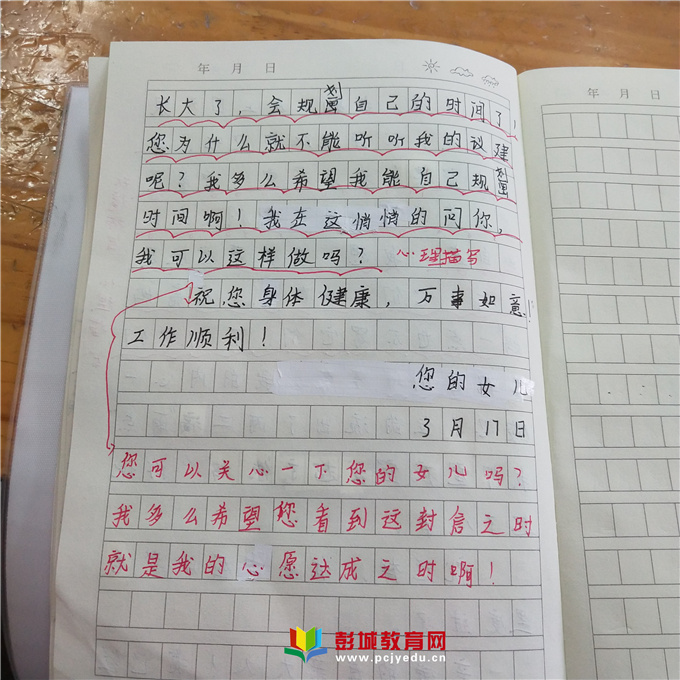 年 月 日
年 月 日
长大了，会规划自己的时间了，
您为什么就不能听听我的议建
呢？我多么希望我能自己规划
时间啊！我在这悄悄的问你，
我可以这样做吗？ 心理描写
祝您身体健康，万事如意，
工作顺利！
您的女儿
3月17日
您可以关心一下您的女儿吗？
我多么希望您看到这封信之时
就是我的心愿达成之时啊！
彭城教育网
www.pcjyedu.cn